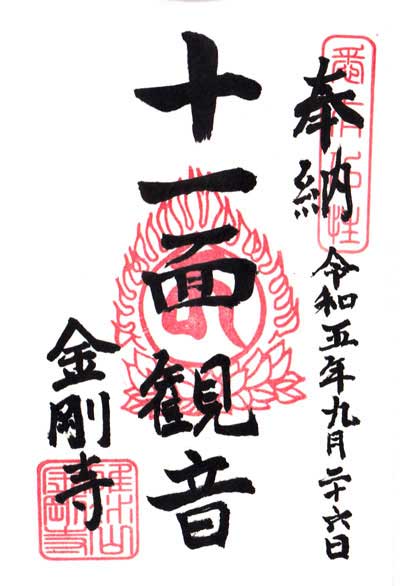 奉納
令和五年九月二十六日
十一面観音
金剛寺